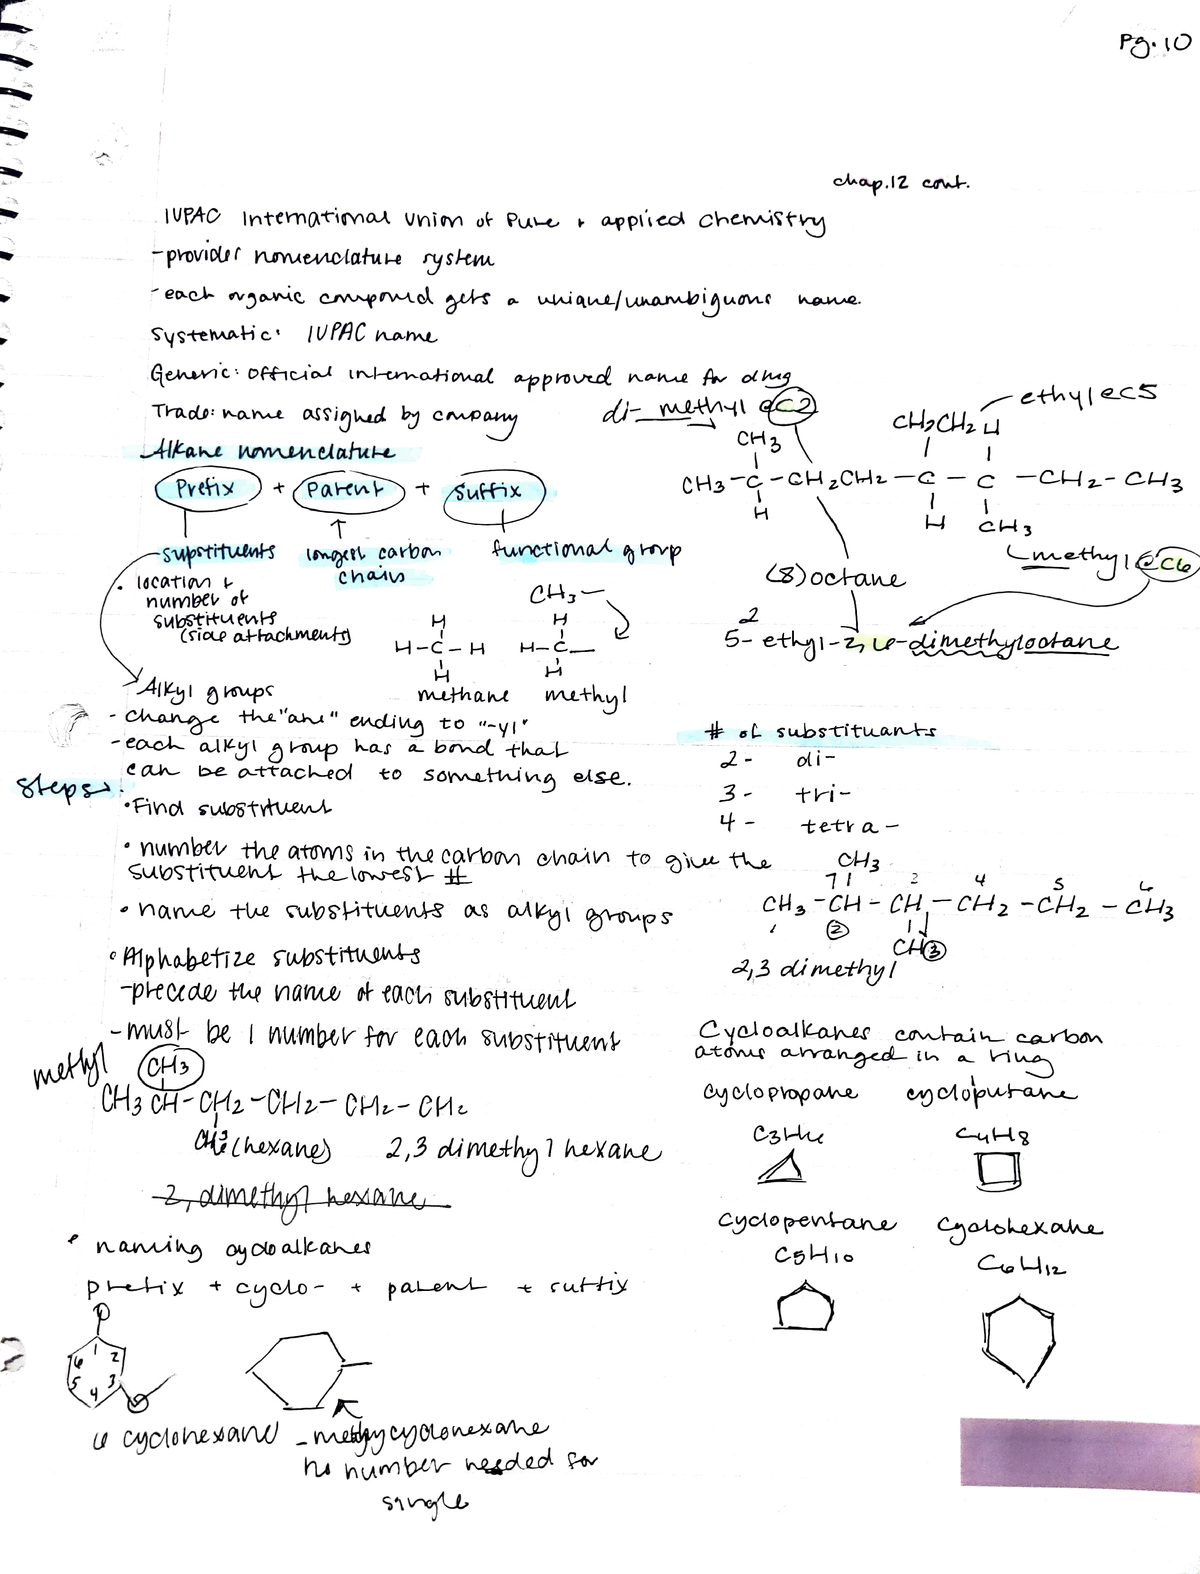 Pg. 10
chap.12 cont.
IUPAC International Union of Pure + applied chemistry
- provides nomenclature system
- each organic compound gets a unique/unambiguous name.
Systematic: IUPAC name
Generic: official international approved name for drug
Trade: name assigned by company
Alkane nomenclature
Prefix + Parent + Suffix
substituents longest carbon chains functional group
• location + number of substituents (side attachments)
CH3 —
H H
H-C-H H-C—
H H
methane methyl
Alkyl groups
- change the "ane" ending to "-yl"
- each alkyl group has a bond that
can be attached to something else.
di- methyl @C2
ethyl@C5
CH3 CH2CH2 H
CH3-C-CH2CH2-C-C-CH2-CH3
H H CH3
methyl @C6
(8) octane
2
5-ethyl-2,6-dimethyloctane
# of substituants
2- di-
3- tri-
4- tetra-
Steps:
• Find substituent
• number the atoms in the carbon chain to give the
substituent the lowest #
• name the substituents as alkyl groups
• Alphabetize substituents
- precede the name of each substituent
- must be 1 number for each substituent
CH3
4 5 6
CH3-CH-CH-CH2-CH2-CH3
2
CH3
2,3 dimethyl
methyl
CH3
CH3 CH-CH2-CH2-CH2-CH2
(hexane) 2,3 dimethyl hexane
2, dimethyl hexane
Cycloalkanes contain carbon
atoms arranged in a ring
cyclopropane cyclobutane
C3H6 C4H8
cyclopentane cyclohexane
C5H10 C6H12
• naming cycloalkanes
prefix + cyclo- + parent + suffix
1 2 3 4 5 6
6 cyclohexane
- methycyclohexane
no number needed for
single